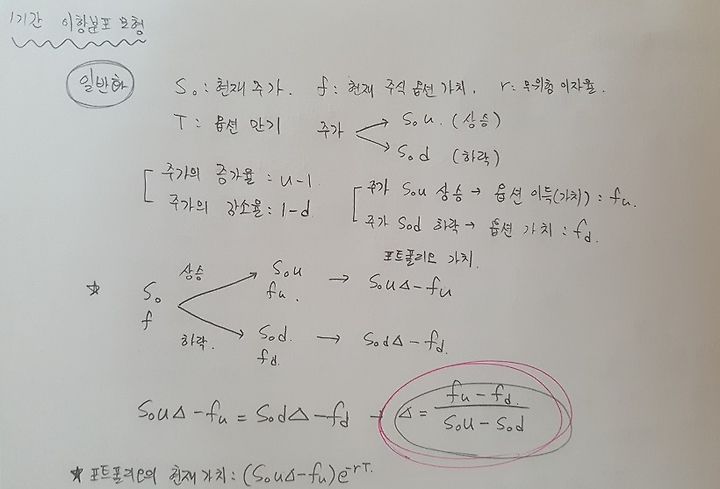 1기간 이항분포 모형
일반화 S₀ : 현재 주가. f : 현재 주식 옵션 가치. r : 무위험 이자율.
T : 옵션 만기 주가 → S₀u. (상승)
→ S₀d (하락)
주가의 증가율 : u-1.
주가의 감소율 : 1-d
주가 S₀u 상승 → 옵션 이득(가치) : fu.
주가 S₀d 하락 → 옵션 가치 : fd.
포트폴리오 가치.
상승 S₀u → S₀uΔ-fu
fu.
☆ S₀
f
하락. S₀d. → S₀dΔ-fd.
fd.
S₀uΔ-fu = S₀dΔ-fd → Δ = (fu-fd.)/(S₀u-S₀d)
★ 포트폴리오의 현재가치 : (S₀uΔ-fu)e^-rT.